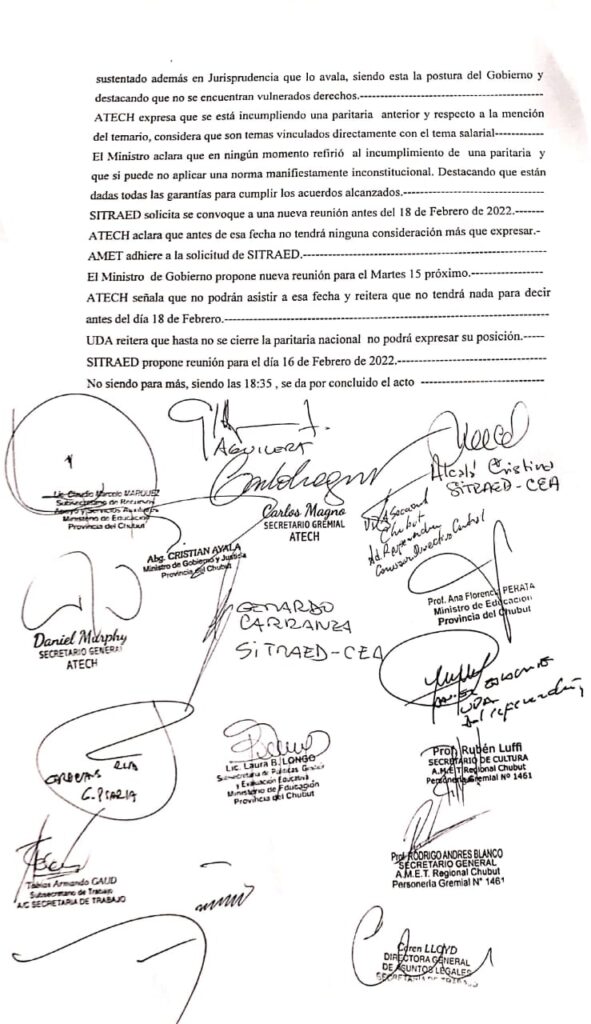 sustentado además en Jurisprudencia que lo avala, siendo esta la postura del Gobierno y
destacando que no se encuentran vulnerados derechos.-----------------------------------
ATECH expresa que se está incumpliendo una paritaria anterior y respecto a la mención
del temario, considera que son temas vinculados directamente con el tema salarial------------
El Ministro aclara que en ningún momento refirió al incumplimiento de una paritaria y
que si puede no aplicar una norma manifiestamente inconstitucional. Destacando que están
dadas todas las garantías para cumplir los acuerdos alcanzados.---------------------------
SITRAED solicita se convoque a una nueva reunión antes del 18 de Febrero de 2022.-------
ATECH aclara que antes de esa fecha no tendrá ninguna consideración más que expresar.-
AMET adhiere a la solicitud de SITRAED.----------------------------------------------
El Ministro de Gobierno propone nueva reunión para el Martes 15 próximo.----------------
ATECH señala que no podrán asistir a esa fecha y reitera que no tendrá nada para decir
antes del día 18 de Febrero.------------------------------------------------------------
UDA reitera que hasta no se cierre la paritaria nacional no podrá expresar su posición.-----
SITRAED propone reunión para el día 16 de Febrero de 2022.------------------------------
No siendo para más, siendo las 18:35 , se da por concluido el acto -----------------------
AGUILERA
Alcalá Cristina
SITRAED-CEA
Lic. Claudio Marcelo MARQUEZ
Subsecretario de Recursos
Apoyo y Servicios Auxiliares
Ministerio de Educación
Provincia del Chubut
Carlos Magno
SECRETARIO GREMIAL
ATECH
Chubut
Abg. CRISTIAN AYALA
Ministro de Gobierno y Justicia
Provincia del Chubut
Prof. Ana Florencia PERATA
Ministro de Educación
Provincia del Chubut
Daniel Murphy
SECRETARIO GENERAL
ATECH
GERARDO
CARRANZA
SITRAED-CEA
UDA
Lic. Laura B. LONGO
Subsecretaria de Políticas, Gestión
y Evaluación Educativa
Ministerio de Educación
Provincia del Chubut
Prof. Rubén Luffi
SECRETARIO DE CULTURA
A.M.E.T Regional Chubut
Personería Gremial N° 1461
Prof. RODRIGO ANDRES BLANCO
SECRETARIO GENERAL
A.M.E.T. Regional Chubut
Personería Gremial N° 1461
Tobías Armando GAUD
Subsecretario de Trabajo
A/C SECRETARIA DE TRABAJO
Caren LLOYD
DIRECTORA GENERAL
DE ASUNTOS LEGALES
SECRETARÍA DE TRABAJO